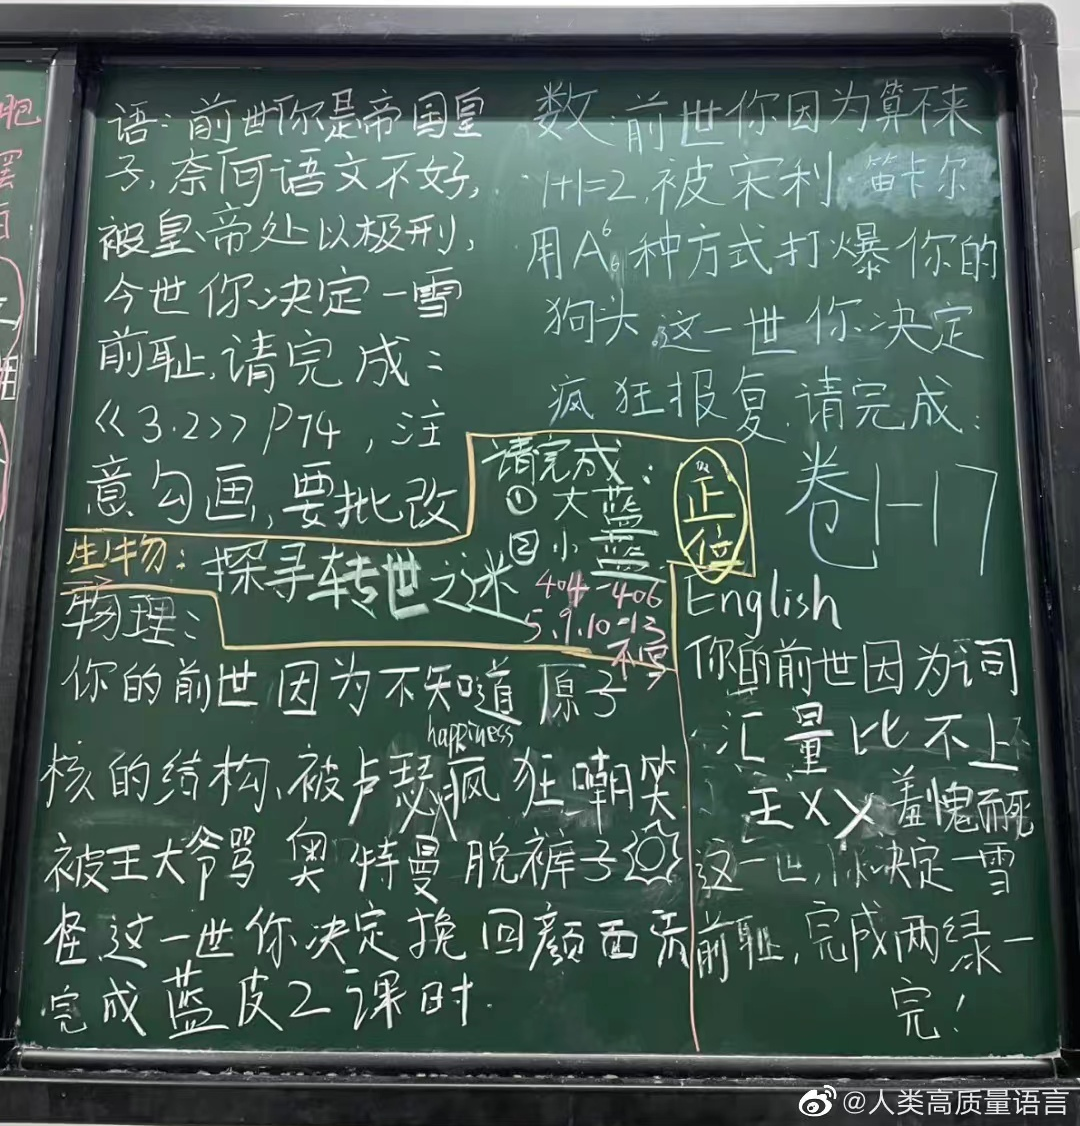 语：前世你是帝国皇
子，奈何语文不好，
被皇帝处以极刑，
今世你决定一雪
前耻，请完成：
《3.2》P74，注
意勾画，要批改
数：前世你因为算不来
1+1=2，被宋利·笛卡尔
用A⁶₆种方式打爆你的
狗头。这一世你决定
疯狂报复，请完成：
卷1-17
生物：探寻转世之迷
请完成：
① 大蓝
② 小蓝
404-406
5、9、10-13
不写
正
物理：
你的前世因为不知道原子
happiness
核的结构，被卢瑟疯狂嘲笑
被王大爷骂 奥特曼脱裤子
怪这一世你决定挽回颜面
完成蓝皮2课时.
English
你的前世因为词
汇量比不上
王XX羞愧而死
这一世，你决定一雪
前耻，完成两绿一
完！
@人类高质量语言